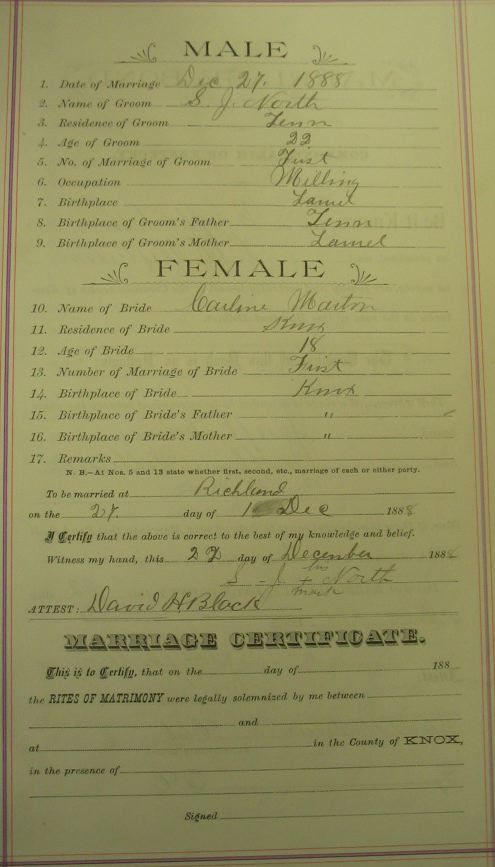 MALE
1. Date of Marriage Dec 27. 1888
2. Name of Groom S. J. North
3. Residence of Groom Tenn
4. Age of Groom 22
5. No. of Marriage of Groom First
6. Occupation Milling
7. Birthplace Laurel
8. Birthplace of Groom's Father Tenn
9. Birthplace of Groom's Mother Laurel
FEMALE
10. Name of Bride Carline
11. Residence of Bride Knox
12. Age of Bride 18
13. Number of Marriage of Bride First
14. Birthplace of Bride Knox
15. Birthplace of Bride's Father "
16. Birthplace of Bride's Mother "
17. Remarks
N. B.—At Nos. 5 and 13 state whether first, second, etc., marriage of each or either party.
To be married at Richland
on the 27. day of Dec 1888
I Certify that the above is correct to the best of my knowledge and belief.
Witness my hand, this day of December 1888
his
S. J. + North
mark
ATTEST: David H. Black
MARRIAGE CERTIFICATE.
This is to Certify, that on the day of 188
the RITES OF MATRIMONY were legally solemnized by me between
and
at in the County of KNOX,
in the presence of
Signed